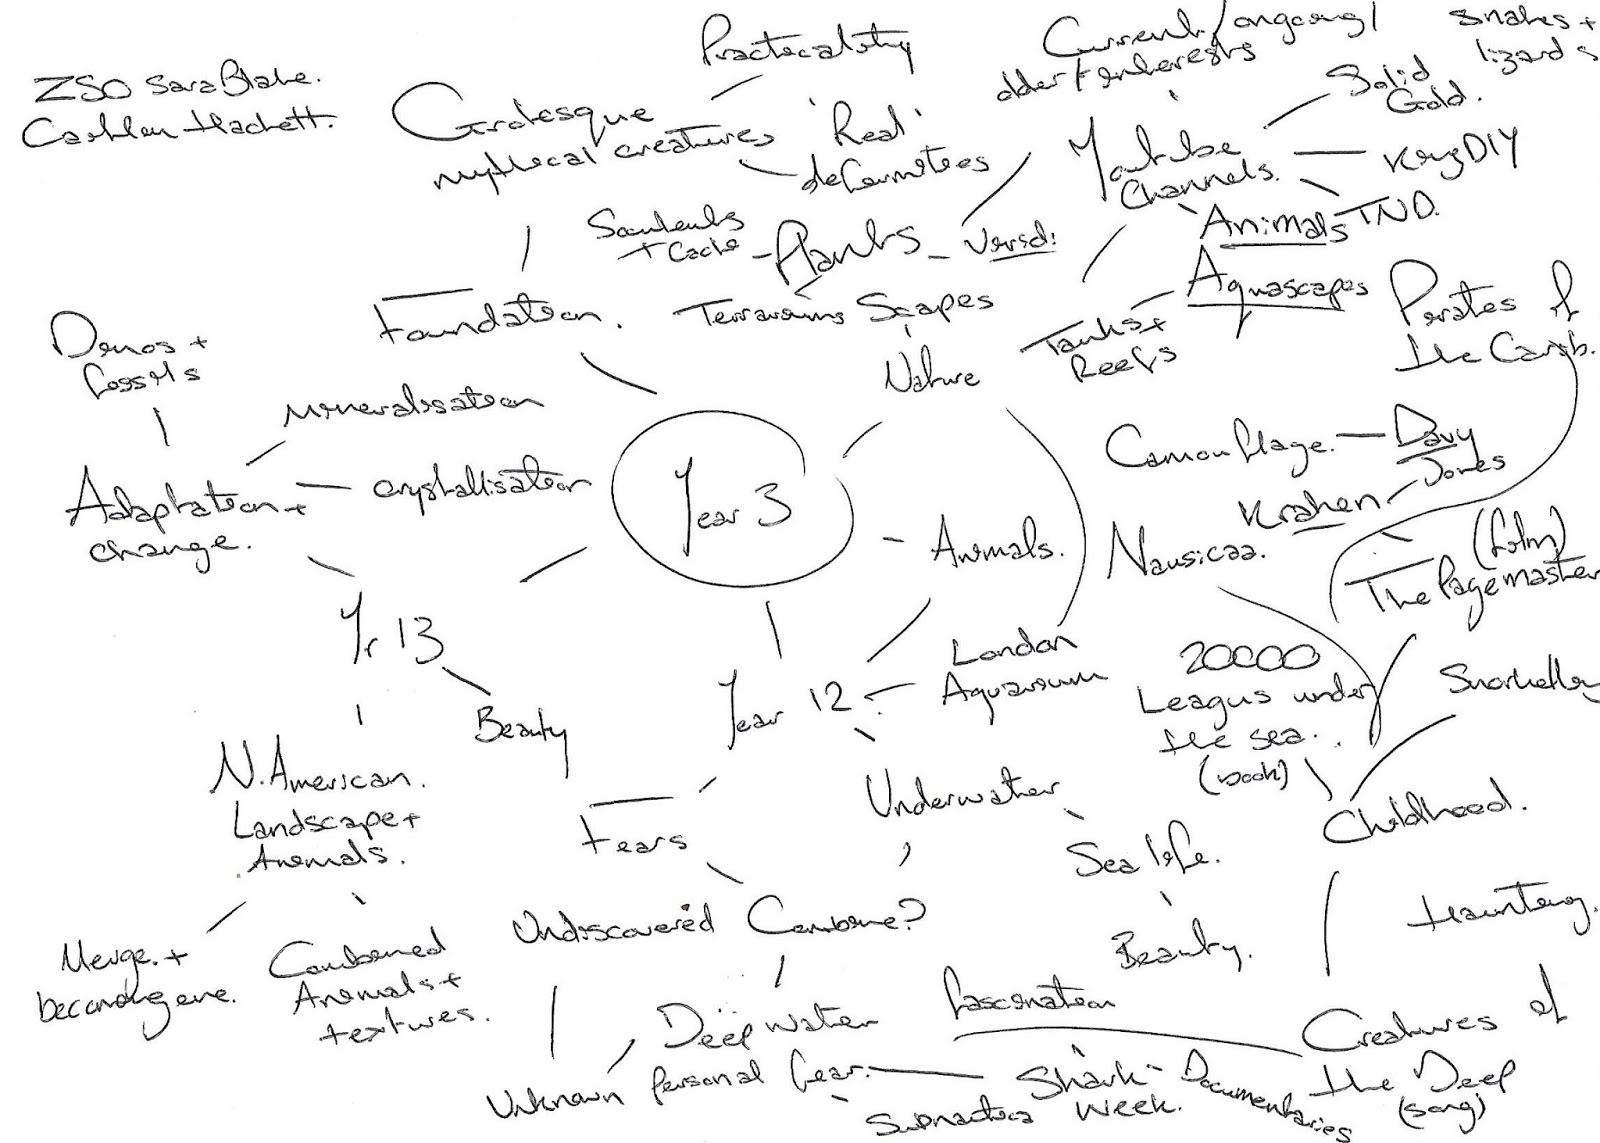 ZSO Sara Blake.
Caitlin Hackett.
Practicality
Grotesque
mythical creatures
'Real'
deformities
Current/ongoing/
older interests
Snakes +
lizards
Solid
Gold.
Youtube
Channels.
KingDIY
TND.
Animals
Aquascapes
Succulents
+ Cacti
Plants
Versd:
Terrariums
Scapes
Nature
Tanks +
Reefs
Pirates of
the Carib.
Foundation.
Dinos +
fossils
Mineralisation
Adaptation +
change.
crystallisation
Year 3
Camouflage.
Davy
Jones
Kraken
Animals.
Nausicaa.
(film)
The Pagemaster
Yr 13
Beauty
Year 12
London
Aquarium
20000
Leagus under
the sea.
(book)
Snorkelling
N. American.
Landscape +
Animals.
Fears
Underwater
Sea life.
Childhood.
Merge. +
becoming one.
Combined
Animals +
textures.
Undiscovered
Combine?
Beauty.
Haunting.
Unknown
Deep water
personal fear.
fascination
Subnautica
Shark
Week.
Documentaries
Creatures of
the Deep
(song)